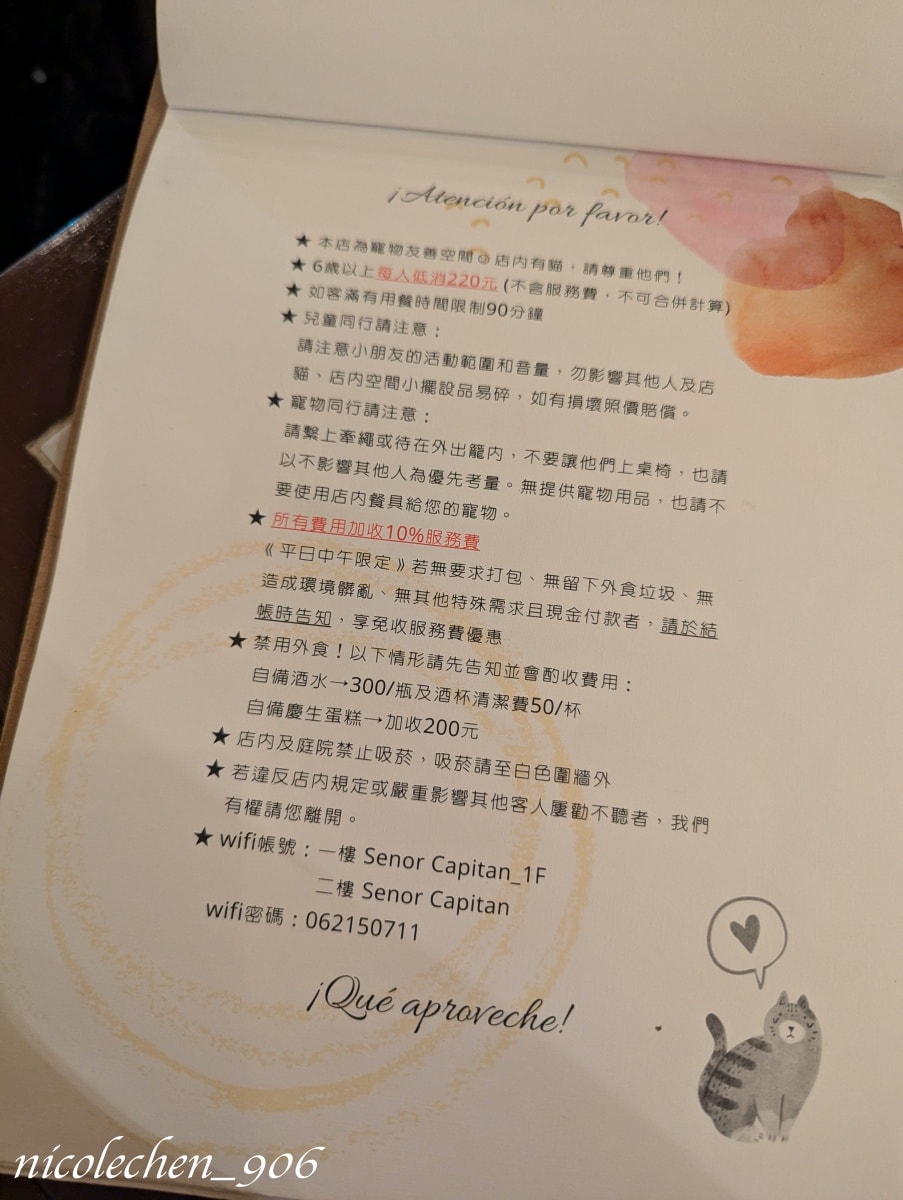 ¡Atención por favor!
★ 本店為寵物友善空間☺店內有貓，請尊重他們！
★ 6歲以上每人低消220元 (不含服務費，不可合併計算)
★ 如客滿有用餐時間限制90分鐘
★ 兒童同行請注意：
請注意小朋友的活動範圍和音量，勿影響其他人及店
貓、店內空間小擺設品易碎，如有損壞照價賠償。
★ 寵物同行請注意：
請繫上牽繩或待在外出籠內，不要讓他們上桌椅，也請
以不影響其他人為優先考量。無提供寵物用品，也請不
要使用店內餐具給您的寵物。
★ 所有費用加收10%服務費
《平日中午限定》若無要求打包、無留下外食垃圾、無
造成環境髒亂、無其他特殊需求且現金付款者，請於結
帳時告知，享免收服務費優惠
★ 禁用外食！以下情形請先告知並會酌收費用：
自備酒水→300/瓶及酒杯清潔費50/杯
自備慶生蛋糕→加收200元
★ 店內及庭院禁止吸菸，吸菸請至白色圍牆外
★ 若違反店內規定或嚴重影響其他客人屢勸不聽者，我們
有權請您離開。
★ wifi帳號：一樓 Senor Capitan_1F
二樓 Senor Capitan
wifi密碼：062150711
¡Qué aproveche!
nicolechen_906